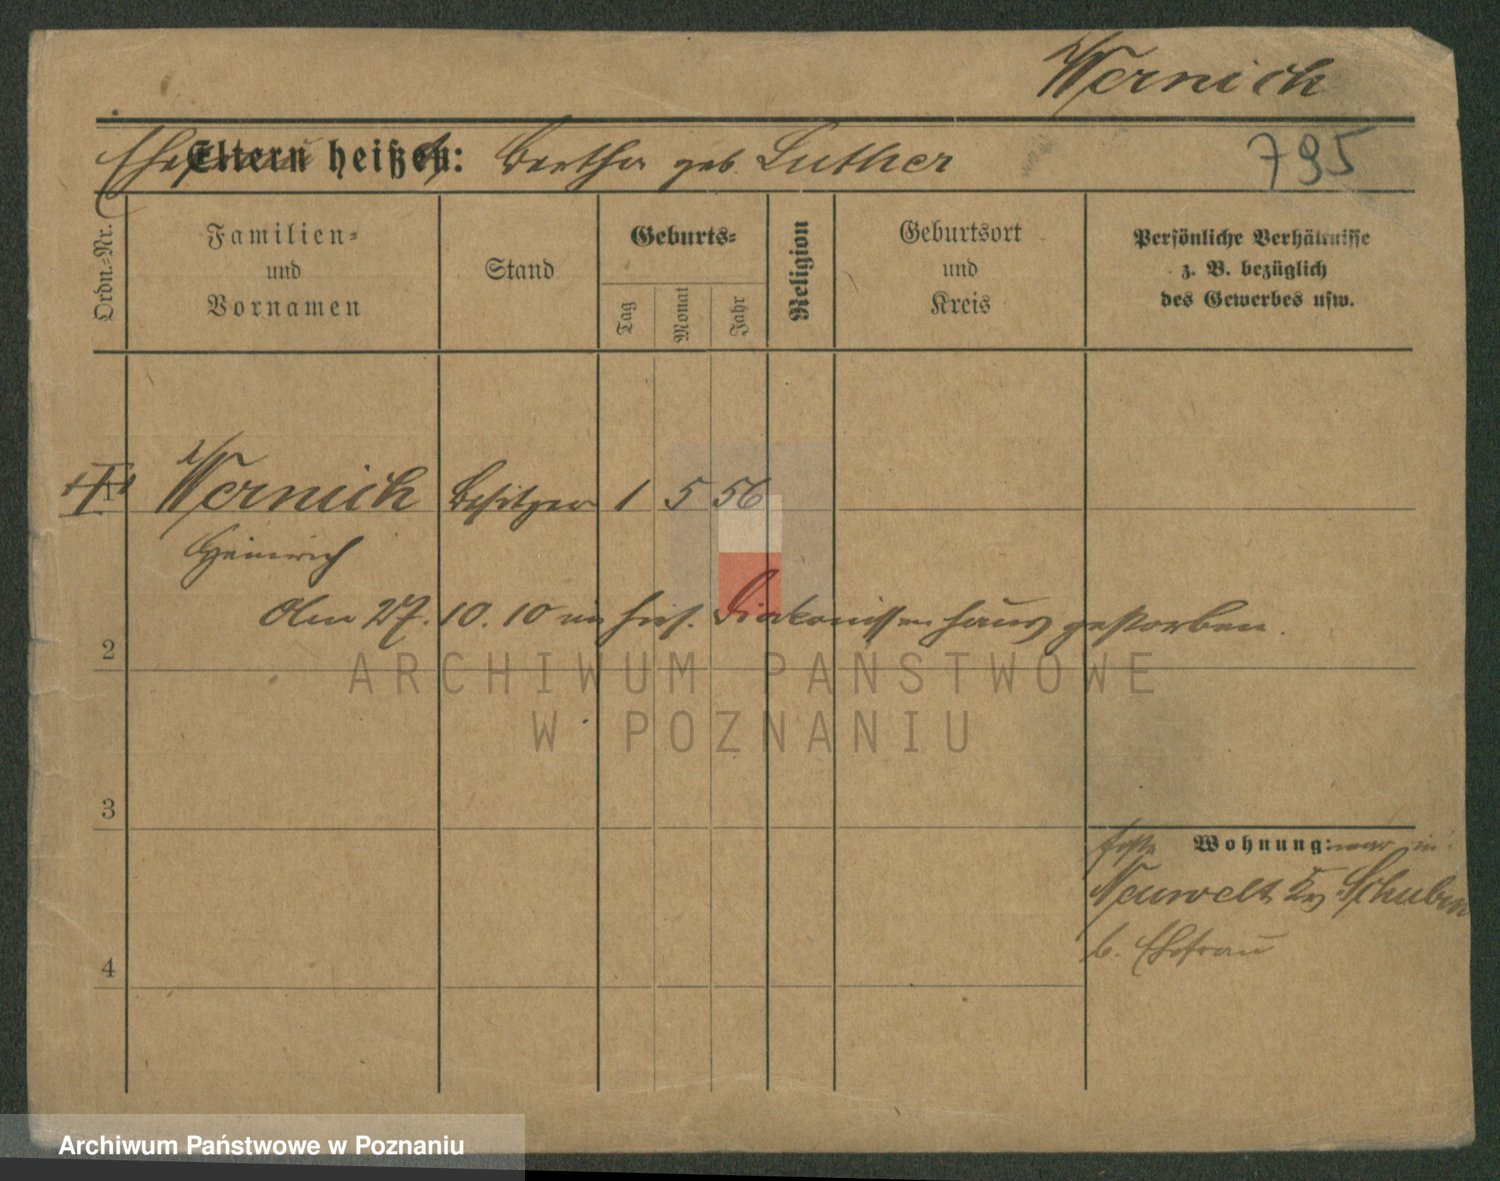 Wernich
Eltern heißen: Bertha geb. Luther
795
Ordn.-Nr.
Familien-
und
Vornamen
Stand
Geburts-
Tag
Monat
Jahr
Religion
Geburtsort
und
Kreis
Persönliche Verhältnisse
z. B. bezüglich
des Gewerbes usw.
1 Wernich Besitzer 1 5 56
Heinrich
Am 27. 10. 10 im hies. Diakonissenhaus gestorben.
2
ARCHIWUM PANSTWOWE
W POZNANIU
3
Wohnung: war in
Neuwelt Kr. Schubin
b. Ehefrau
4
Archiwum Państwowe w Poznaniu